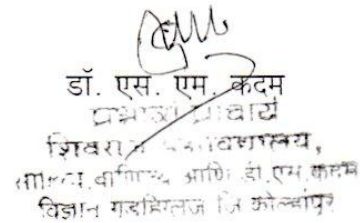 डॉ. एस. एम. कदम
प्रभारी प्राचार्य
शिवराज महाविद्यालय,
वाणिज्य आणि डी.एम. कदम
विज्ञान गडहिंग्लज जि कोल्हापूर